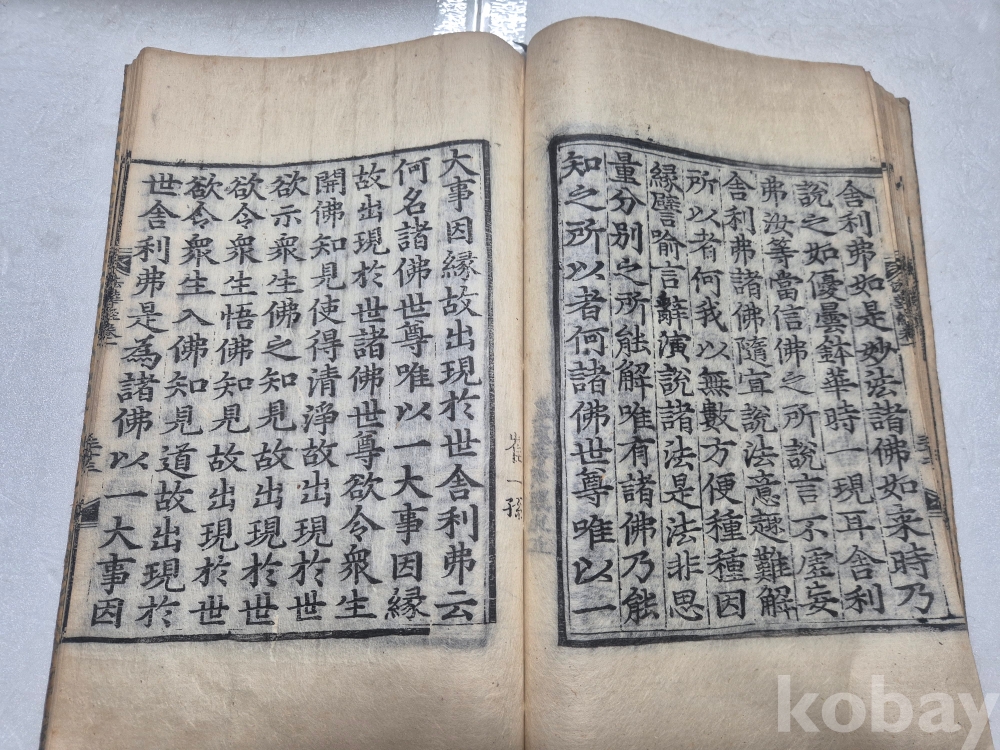 舍利弗如是妙法諸佛如来時乃
說之如優曇鉢華時一現耳舍利
弗汝等當信佛之所說言不虛妄
舍利弗諸佛隨宜說法意趣難解
所以者何我以無數方便種種因
縁譬喻言辭演說諸法是法非思
量分別之所能解唯有諸佛乃能
知之所以者何諸佛世尊唯以一
一孫
大事因縁故出現於世舍利弗云
何名諸佛世尊唯以一大事因縁
故出現於世諸佛世尊欲令衆生
開佛知見使得清淨故出現於世
欲示衆生佛之知見故出現於世
欲令衆生悟佛知見故出現於世
欲令衆生入佛知見道故出現於
世舍利弗是為諸佛以一大事因
kobay